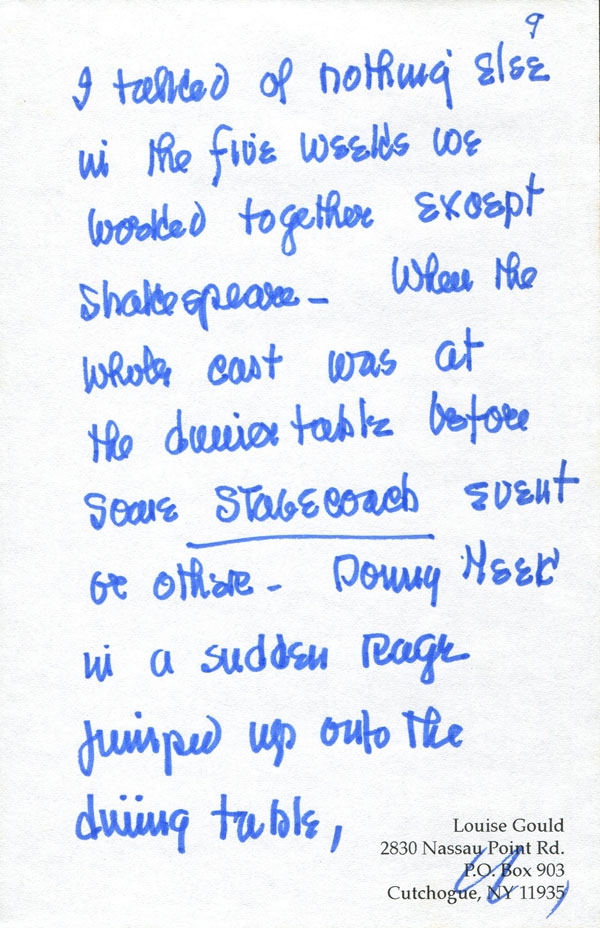 9
I talked of nothing else
in the five weeks we
worked together except
Shakespeare – When the
whole cast was at
the dinner table before
some STAGECOACH event
or other – Donny Meek
in a sudden rage
jumped up onto the
dining table,
Louise Gould
2830 Nassau Point Rd.
P.O. Box 903
Cutchogue, NY 11935